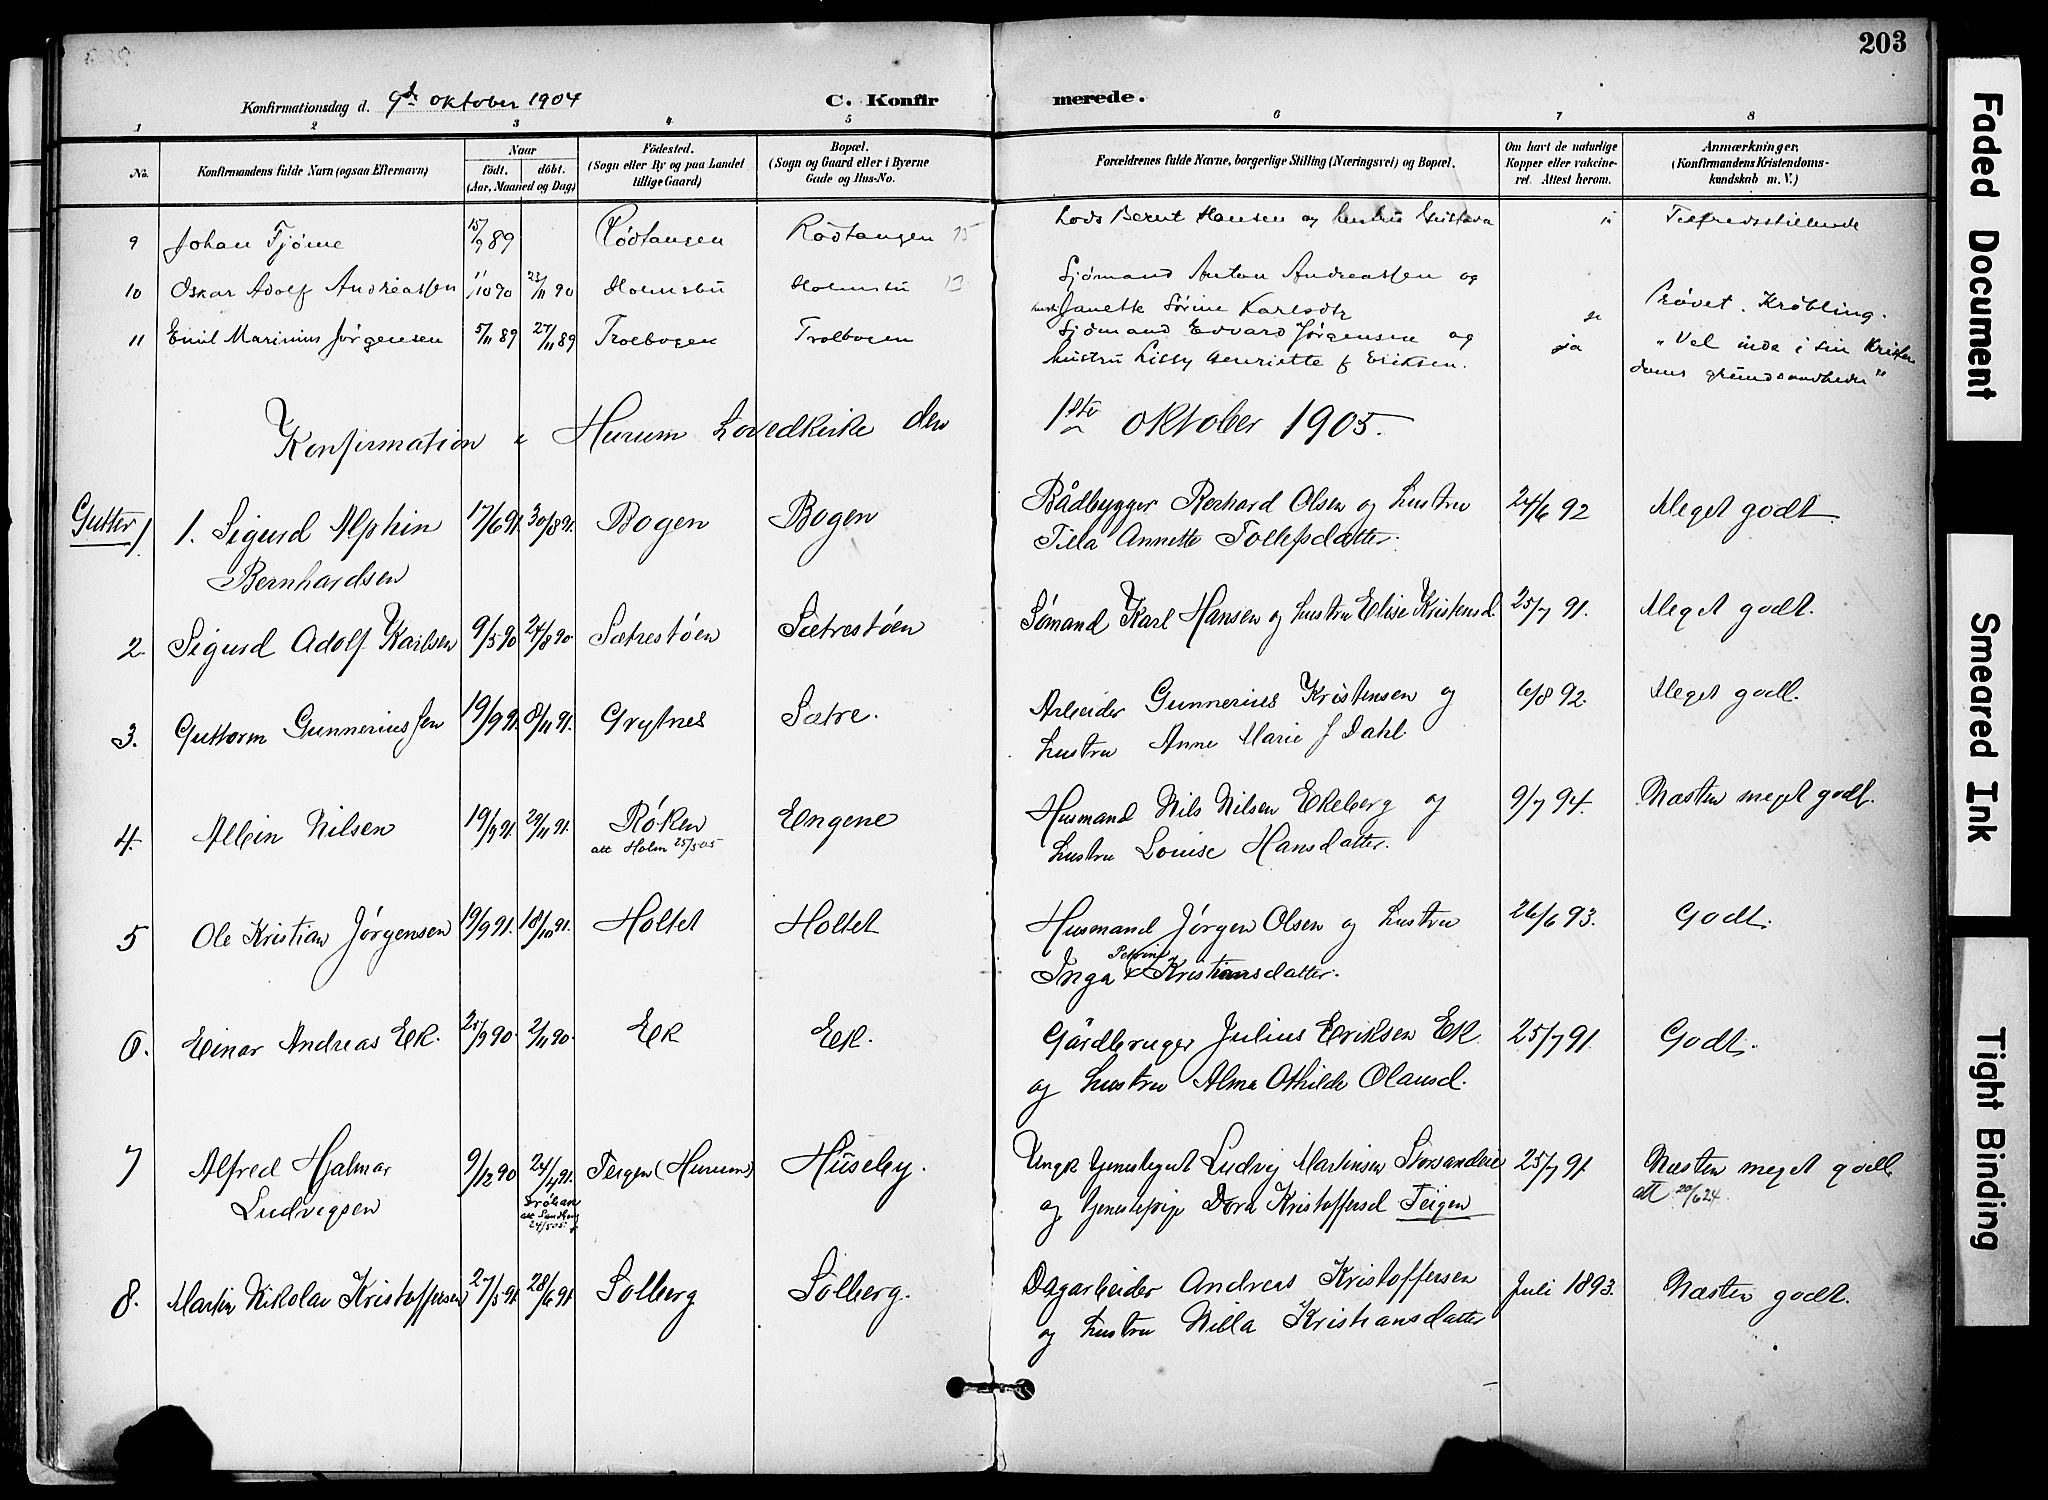 203
Konfirmationsdag d. 9d oktober 1904 C. Konfirmerede.
1 2 3 4 5 6 7 8
No. Konfirmandens fulde Navn (ogsaa Efternavn) Naar født. døbt. (Aar, Maaned og Dag) Fødested. (Sogn eller By og paa Landet tillige Gaard) Bopæl. (Sogn og Gaard eller i Byerne Gade og Hus-No. Forældrenes fulde Navne, borgerlige Stilling (Næringsvei) og Bopæl. Om havt de naturlige Kopper eller vakcineret. Attest herom. Anmærkninger, (Konfirmandens Kristendomskundskab m. V.)
9 Johan Tjøme 15/9 89 Rødtangen Rødtangen Lods Bernt Hansen og hustru Gustava Tilfredsstillende
10 Oskar Adolf Andreassen 11/10 90 23/11 90 Holmsbu Holmsbu Sjømand Anton Andreassen og
Janette Sørine Karlsdtr Prøvet. Krøbling.
11 Emil Marinius Jørgensen 5/11 89 27/11 89 Trolbogen Trolbogen Sjømand Edvard Jørgensen og ja "Vel inde i sin Kristen
hustru Lissy Henriette f Eriksen. doms grundsandheder"
Konfirmation i Hurum Hovedkirke den 1ste oktober 1905.
Gutter 1) 1. Sigurd Alphin 17/6 91. 30/8 91. Bogen Bogen Bådbygger Berhard Olsen og hustru 24/6 92 Meget godt.
Bernhardsen Tilla Annette Tollefsdatter.
2. Sigurd Adolf Karlsen 9/5 90 24/8 90. Sætrestøen Sætrestøen Sømand Karl Hansen og hustru Elise Kristensd. 25/7 91. Meget godt.
3. Guttorm Gunneriussen 19/9 91. 8/11 91. Grytnes Sætre. Arbeider Gunnerius Kristensen og 6/8 92. Meget godt.
hustru Anne Marie f Dahl.
4. Albin Nilsen 19/9 91. 29/11 91. Røken Engene Husmand Nils Nilsen Ekeberg og 9/7 94. Næsten meget godt.
att Holm 25/5 05 hustru Louise Hansdatter.
5 Ole Kristian Jørgensen 19/9 91. 18/10 91. Holtet Holtet Husmand Jørgen Olsen og hustru 26/6 93. Godt.
Inga Petrine Kristiansdatter.
6. Einar Andreas Ek. 25/9 90. 2/11 90. Ek Ek. Gårdbruger Julius Eriksen Ek 25/7 91. Godt.
og hustru Alma Othilde Olausd.
7 Alfred Hjalmar 9/12 90 24/4 91. Teigen (Hurum) Huseby. Ungk Ludvig Martinsen Storsandene 25/7 91. Næsten meget godt.
Ludvigsen Drøbak att 24/5 05. og Dora Kristoffersd Teigen att 20/6 24.
8. Martin Nikolai Kristoffersen 27/5 91. 28/6 91. Solberg Solberg. Dagarbeider Andreas Kristoffersen Juli 1893. Næsten godt.
og hustru Nilla Kristiansdatter
Faded Document
Smeared Ink
Tight Binding